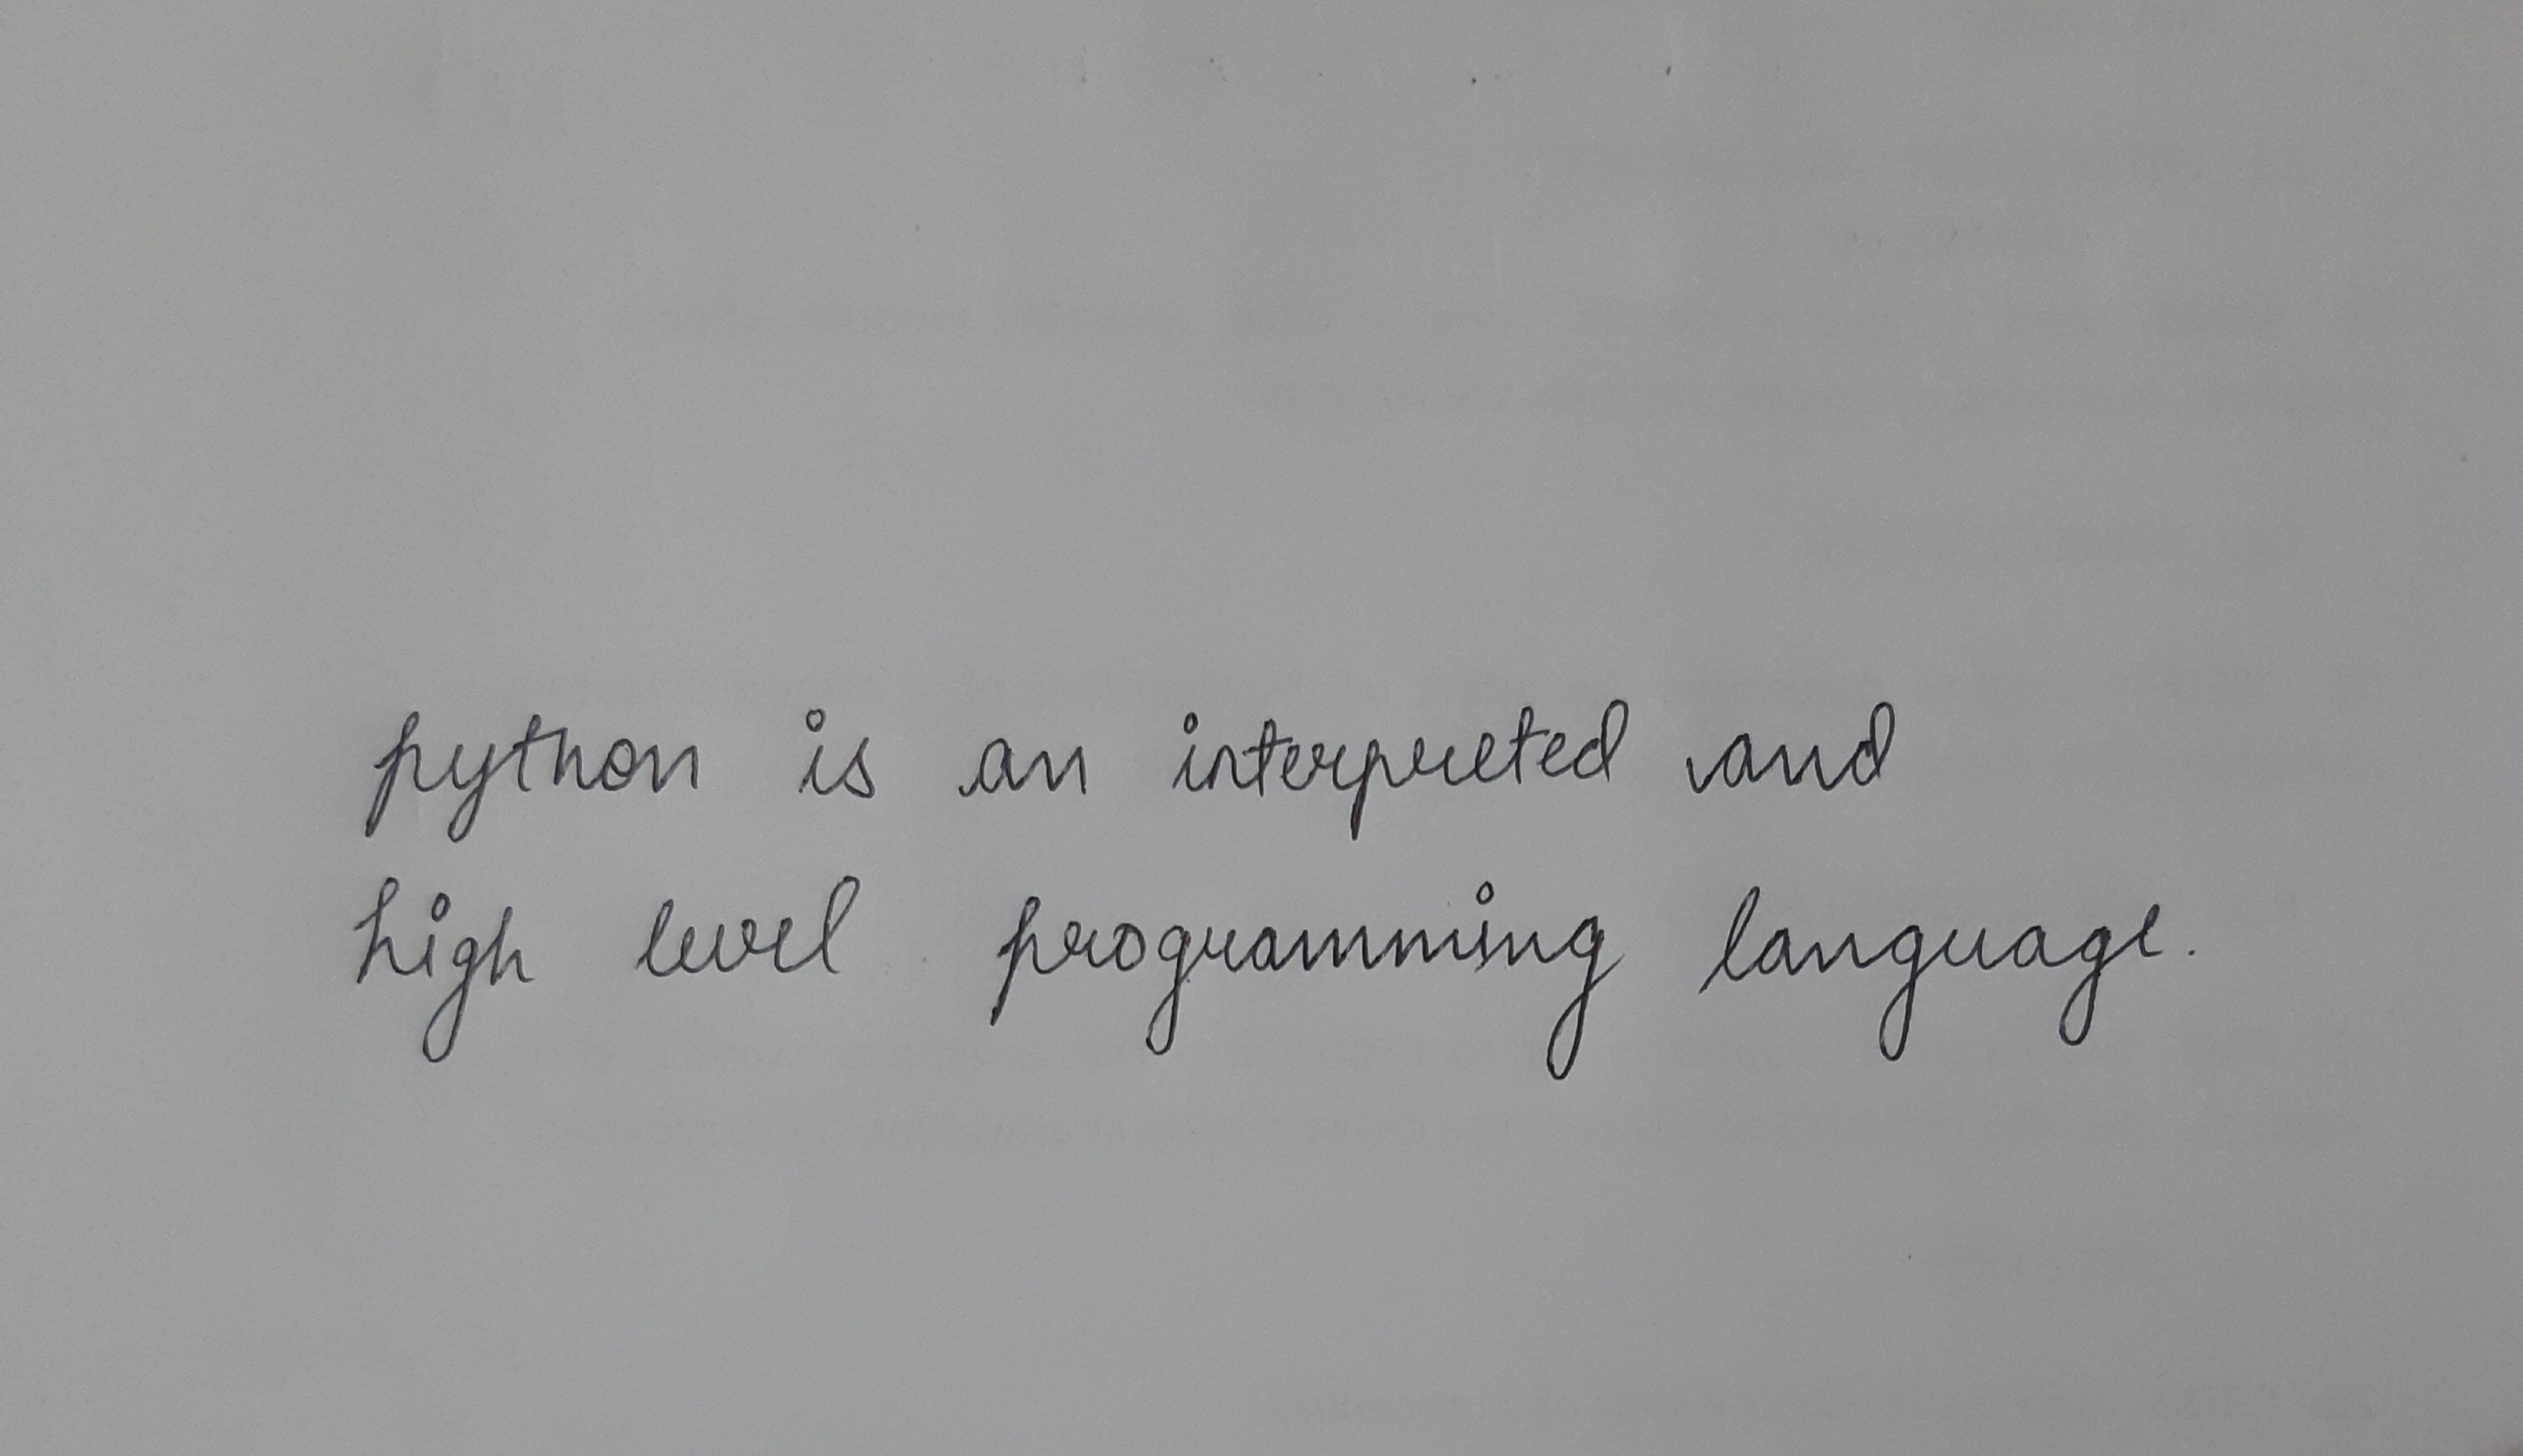 python is an interpreted and
high level programming language.